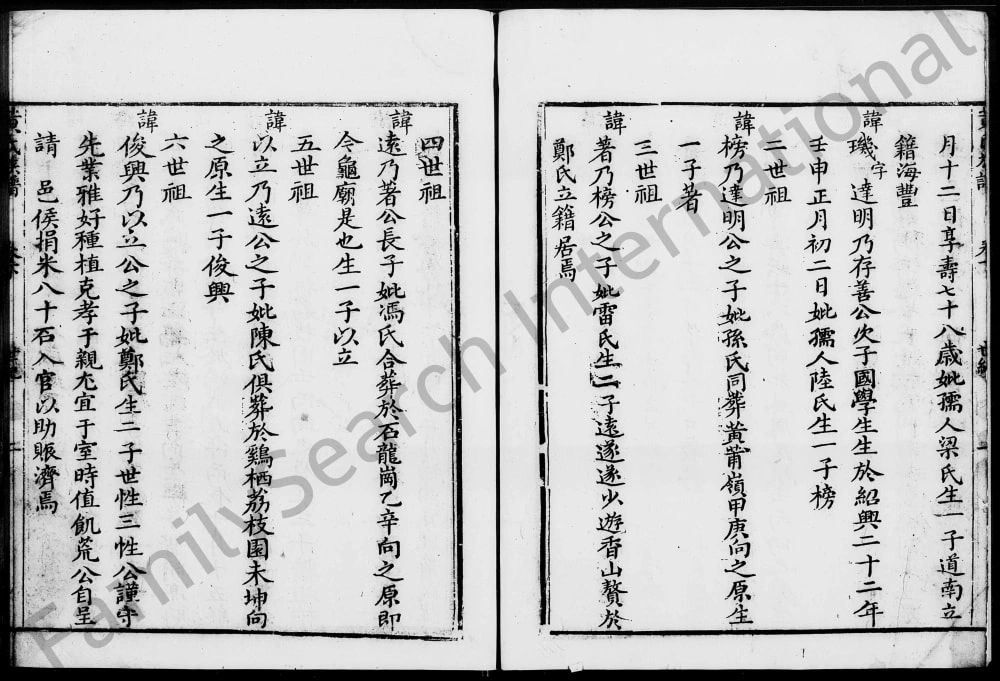 月十二日享壽七十八歲妣孺人梁氏生一子道南立
籍海豐
諱
璣字達明乃存善公次子國學生生於紹興二十二年
壬申正月初二日妣孺人陸氏生一子榜
二世祖
諱
榜乃達明公之子妣孫氏同葬黃莆嶺甲庚向之原生
一子著
三世祖
諱
著乃榜公之子妣雷氏生二子遠遂遂少遊香山贅於
鄭氏立籍居焉
四世祖
諱
遠乃著公長子妣馮氏合葬於石龍崗乙辛向之原即
今龜廟是也生一子以立
五世祖
諱
以立乃遠公之子妣陳氏俱葬於鷄栖荔枝園未坤向
之原生一子俊興
六世祖
諱
俊興乃以立公之子妣鄭氏生二子世性三性公謹守
先業雅好種植克孝于親尤宜于室時值飢荒公自呈
請 邑侯捐米八十石入官以助賑濟焉
FamilySearch International